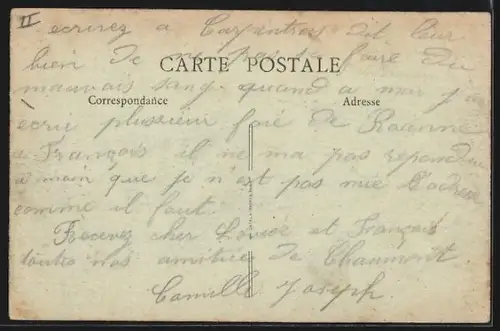 II
ecrivez a Carpentras dit leur
bien de ne pas se faire du
CARTE POSTALE
mauvais sang quand a moi j'ai
Correspondance
Adresse
ecri plusieur foie de Roanne
a François il ne ma pas repondu
a moin que je n'est pas mie l'adresse
comme il faut.
Recevez cher Louise et François
toutes nos amitiée de Chaumont
Camille Joseph